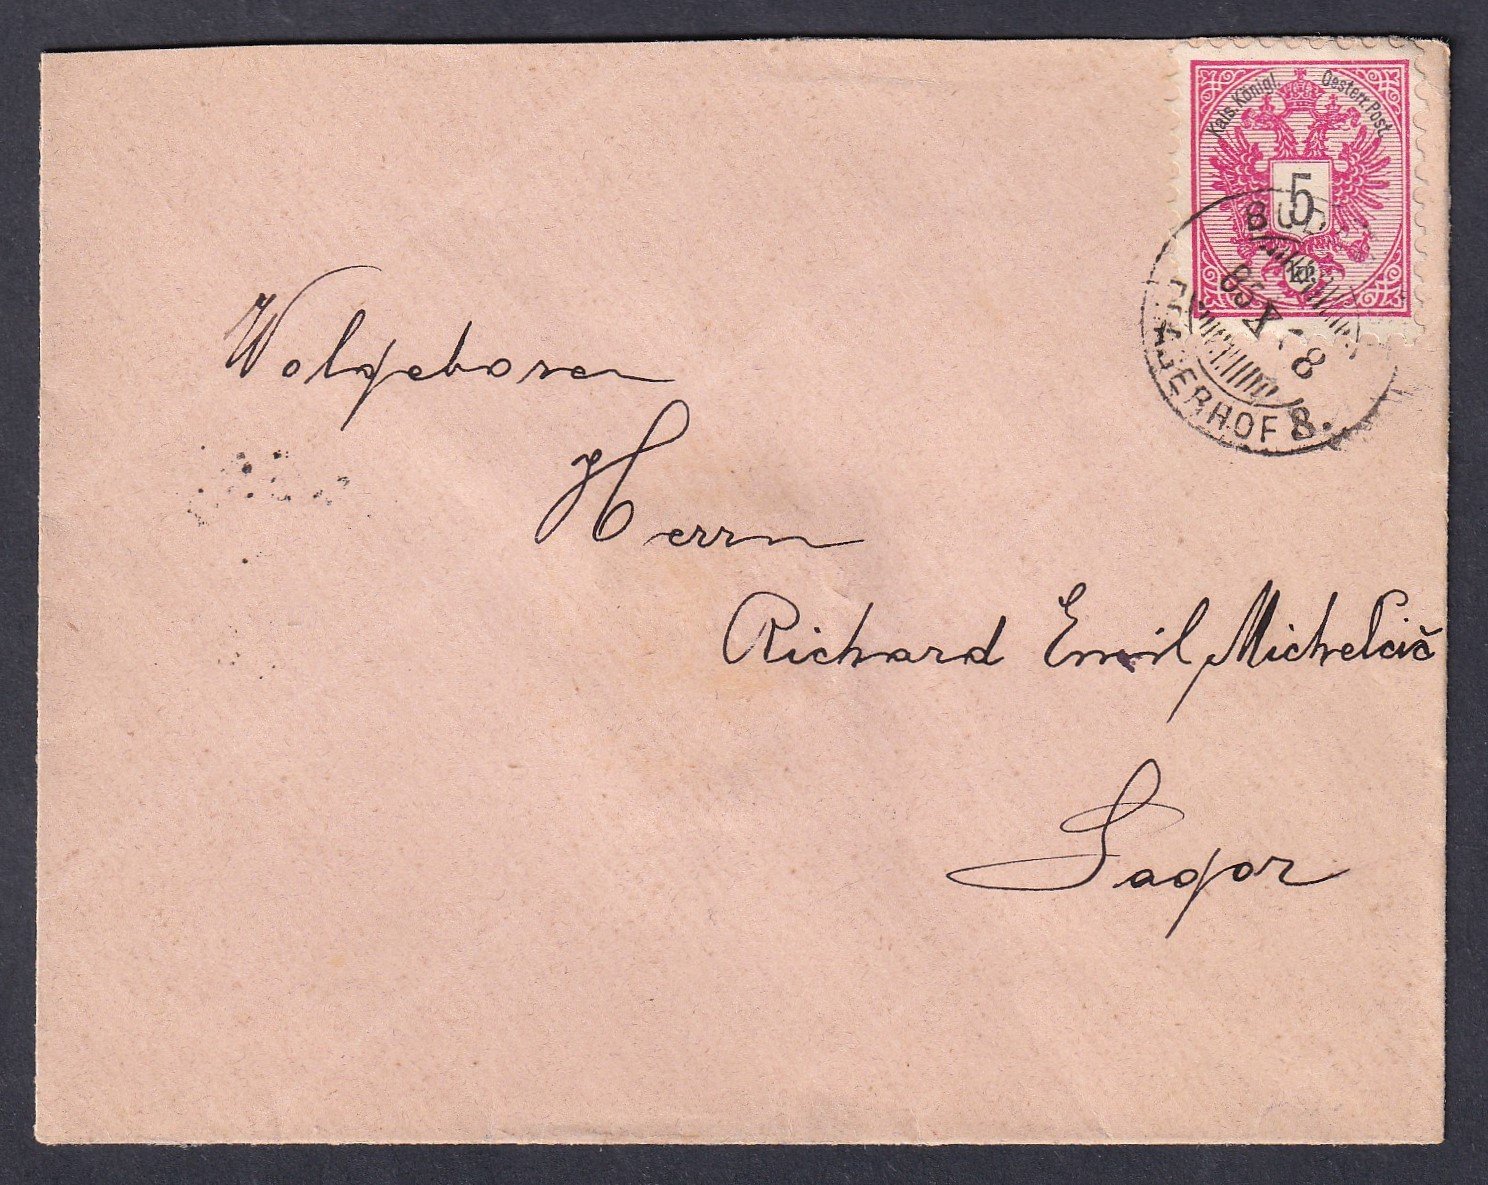 Kais. Königl. Oesterr. Post.
5
kr.
BUD
85 X 8
PRAGERHOF 8.
Wolgeboren
Herrn
Richard Emil Michelčič
Sagor